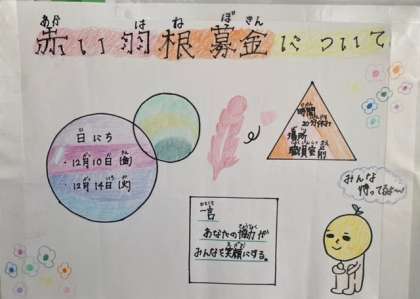 赤い羽根募金について
日にち
・12月10日(金)
・12月14日(火)
時間
20分休み
場所
職員室前
一言
あなたの協力が
みんなを笑顔にする。
みんな
待ってるよ〜!